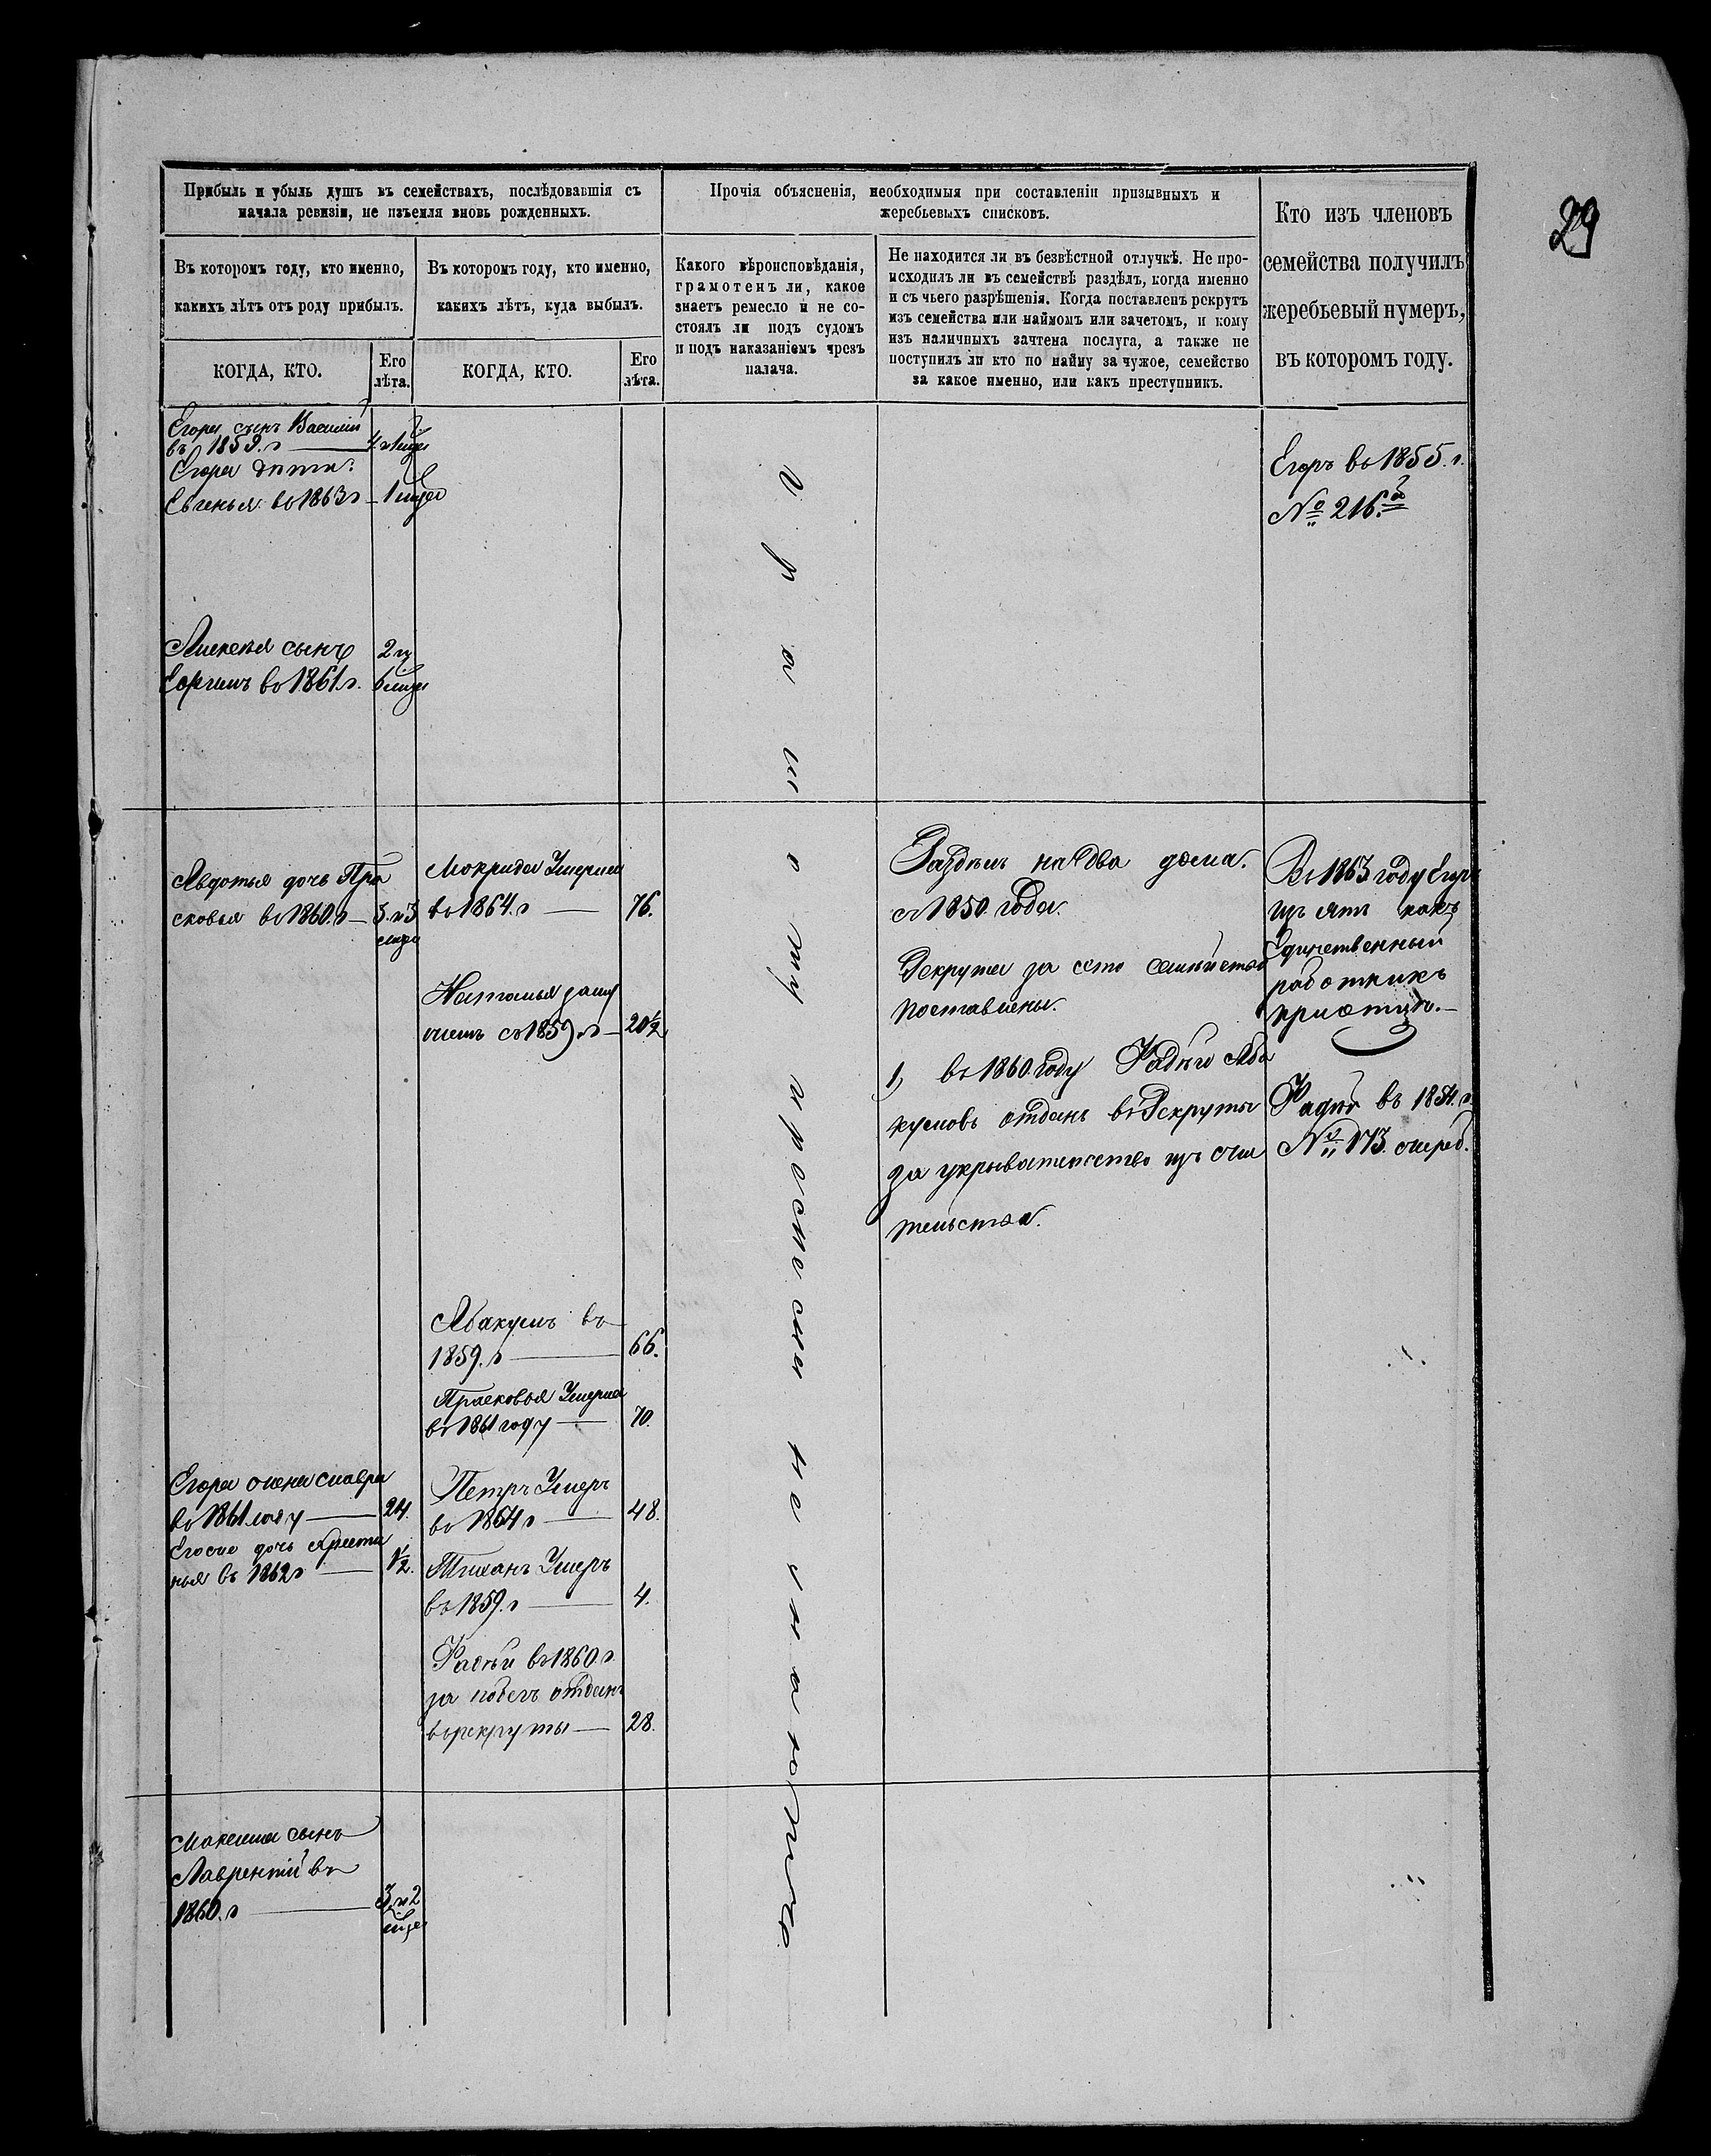 29
Прибыль и убыль душъ въ семействахъ, послѣдовавшія съ
начала ревизіи, не изъемля вновь рожденныхъ.
Въ которомъ году, кто именно,
какихъ лѣтъ отъ роду прибылъ.
КОГДА, КТО.
Его
лѣта.
Въ которомъ году, кто именно,
какихъ лѣтъ, куда выбылъ.
КОГДА, КТО.
Его
лѣта.
Прочія объясненія, необходимыя при составленіи призывныхъ и
жеребьевыхъ списковъ.
Какого вѣроисповѣданія,
грамотенъ ли, какое
знаетъ ремесло и не со-
стоялъ ли подъ судомъ
и подъ наказаніемъ чрезъ
палача.
Не находится ли въ безвѣстной отлучкѣ. Не про-
исходилъ ли въ семействѣ раздѣлъ, когда именно
и съ чьего разрѣшенія. Когда поставленъ рекрутъ
изъ семейства или наймомъ или зачетомъ, и кому
изъ наличныхъ зачтена послуга, а также не
поступилъ ли кто по найму за чужое, семейство
за какое именно, или какъ преступникъ.
Кто изъ членовъ
семейства получилъ
жеребьевый нумеръ,
въ которомъ году.
Егора сынъ Василій
въ 1859. г
Егора
Евгенья въ 1863 г 1
Егоръ въ 1855. г.
№ 216.й
Алексѣя сынъ 2
въ 1861 г. 6
Авдотья дочь Пра
сковья въ 1860. г 3. и 3
Мокрида Умерла
въ 1864. г 76.
Наталья заму
жемъ съ 1859 г 20½
Раздѣлъ на два дома.
съ 1850. года.
Рекрута за сего семейства
поставлены.
1, въ 1860. году Фадѣй Аба
кумовъ отданъ въ Рекруты
за укрывательство изъ
тельства.
Въ 1863 году Егоръ
изъятъ какъ
Единственный
работникъ
Фадѣй въ 1854. г.
№ 173. очеред.
Абакумъ въ
1859. г 66.
Прасковья Умерла
въ 1861 году 70.
Егора жена Мавра
въ 1861 году 24.
Его дочь
въ 1862 г 1½.
Петръ Умеръ
въ 1864 г 48.
Умеръ
въ 1859. г 4.
Фадѣй въ 1860. г
за побегъ отданъ
въ рекруты 28.
Максима сынъ
Лаврентій въ
1860. г 3 и 2